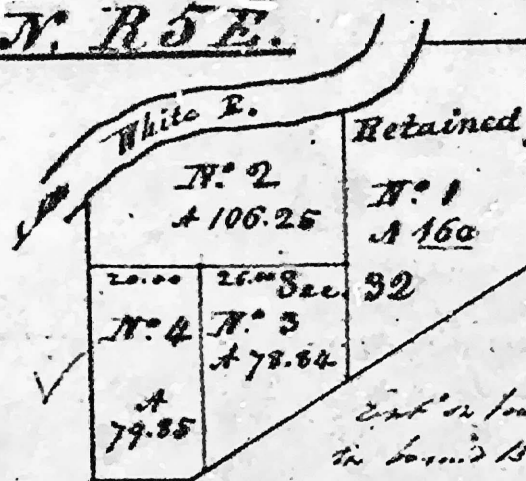 N. R 5 E.
White R.
Retained
No. 2
A 106.25
No. 1
A 160
20.00
26.00
Sec. 32
No. 4
No. 3
A 78.84
A
79.85
in